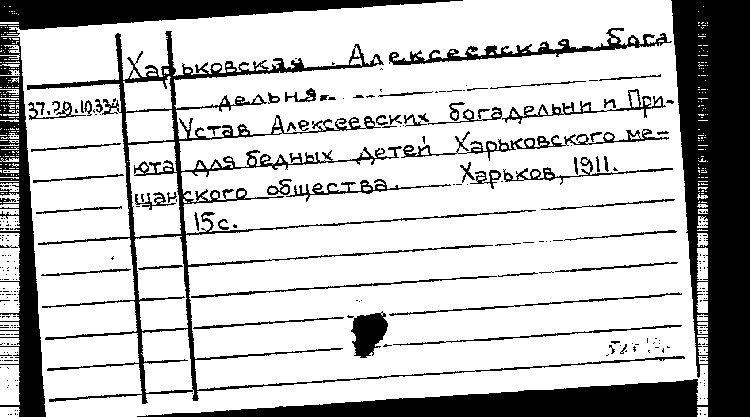 Харьковская Алексеевская бога
дельня.
37.29.10.334
Устав Алексеевских богадельни и При-
юта для бедных детей Харьковского ме=
щанского общества. Харьков, 1911.
15 с.